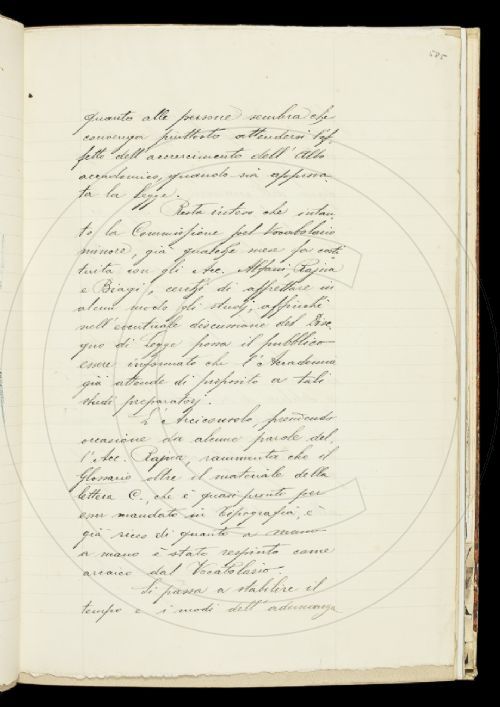 585
quanto alle persone sembra che
convenga piuttosto attendersi l'ef-
fetto dell'accrescimento dell'Albo
accademico, quando sia approva-
ta la Legge.
Resta inteso che intan-
to la Commissione pel Vocabolario
minore, già qualche mese fa costi-
tuita con gli Acc. Alfani, Rajna
e Biagi, cerchi di affrettare in
alcun modo gli studj, affinchè
nell'eventuale discussione del Dise-
gno di Legge possa il pubblico
essere informato che l'Accademia
già attende di proposito a tali
studi preparatorj.
L'Arciconsolo, prendendo
occasione da alcune parole del-
l'Acc. Rajna, rammenta che il
Glossario oltre il materiale della
lettera C., che è quasi pronto per
esser mandato in tipografia, è
già ricco di quanto a mano
a mano è stato respinto come
arcaico dal Vocabolario.
Si passa a stabilire il
tempo e i modi dell'adunanza